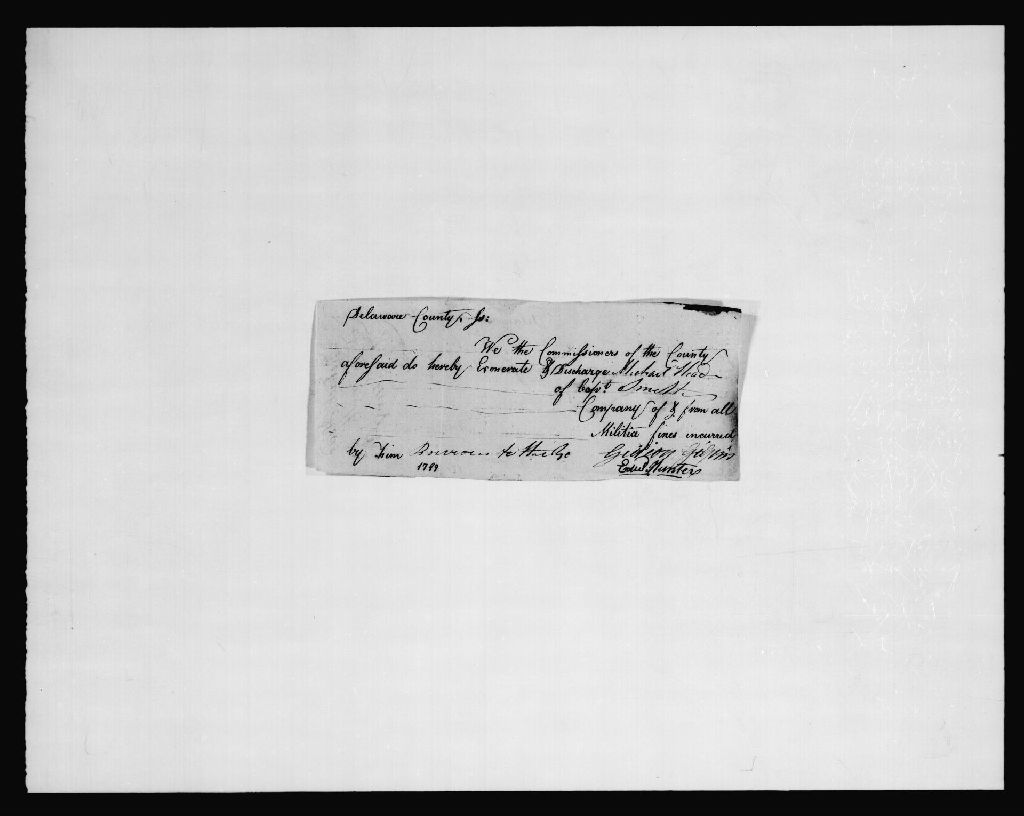 Delaware County Ss:
We the Commissioners of the County
aforesaid do hereby Exonerate & Discharge Michael
of Capt. Smith
Company of & from all
Militia fines incurred
by him to the
Gideon
Hunter